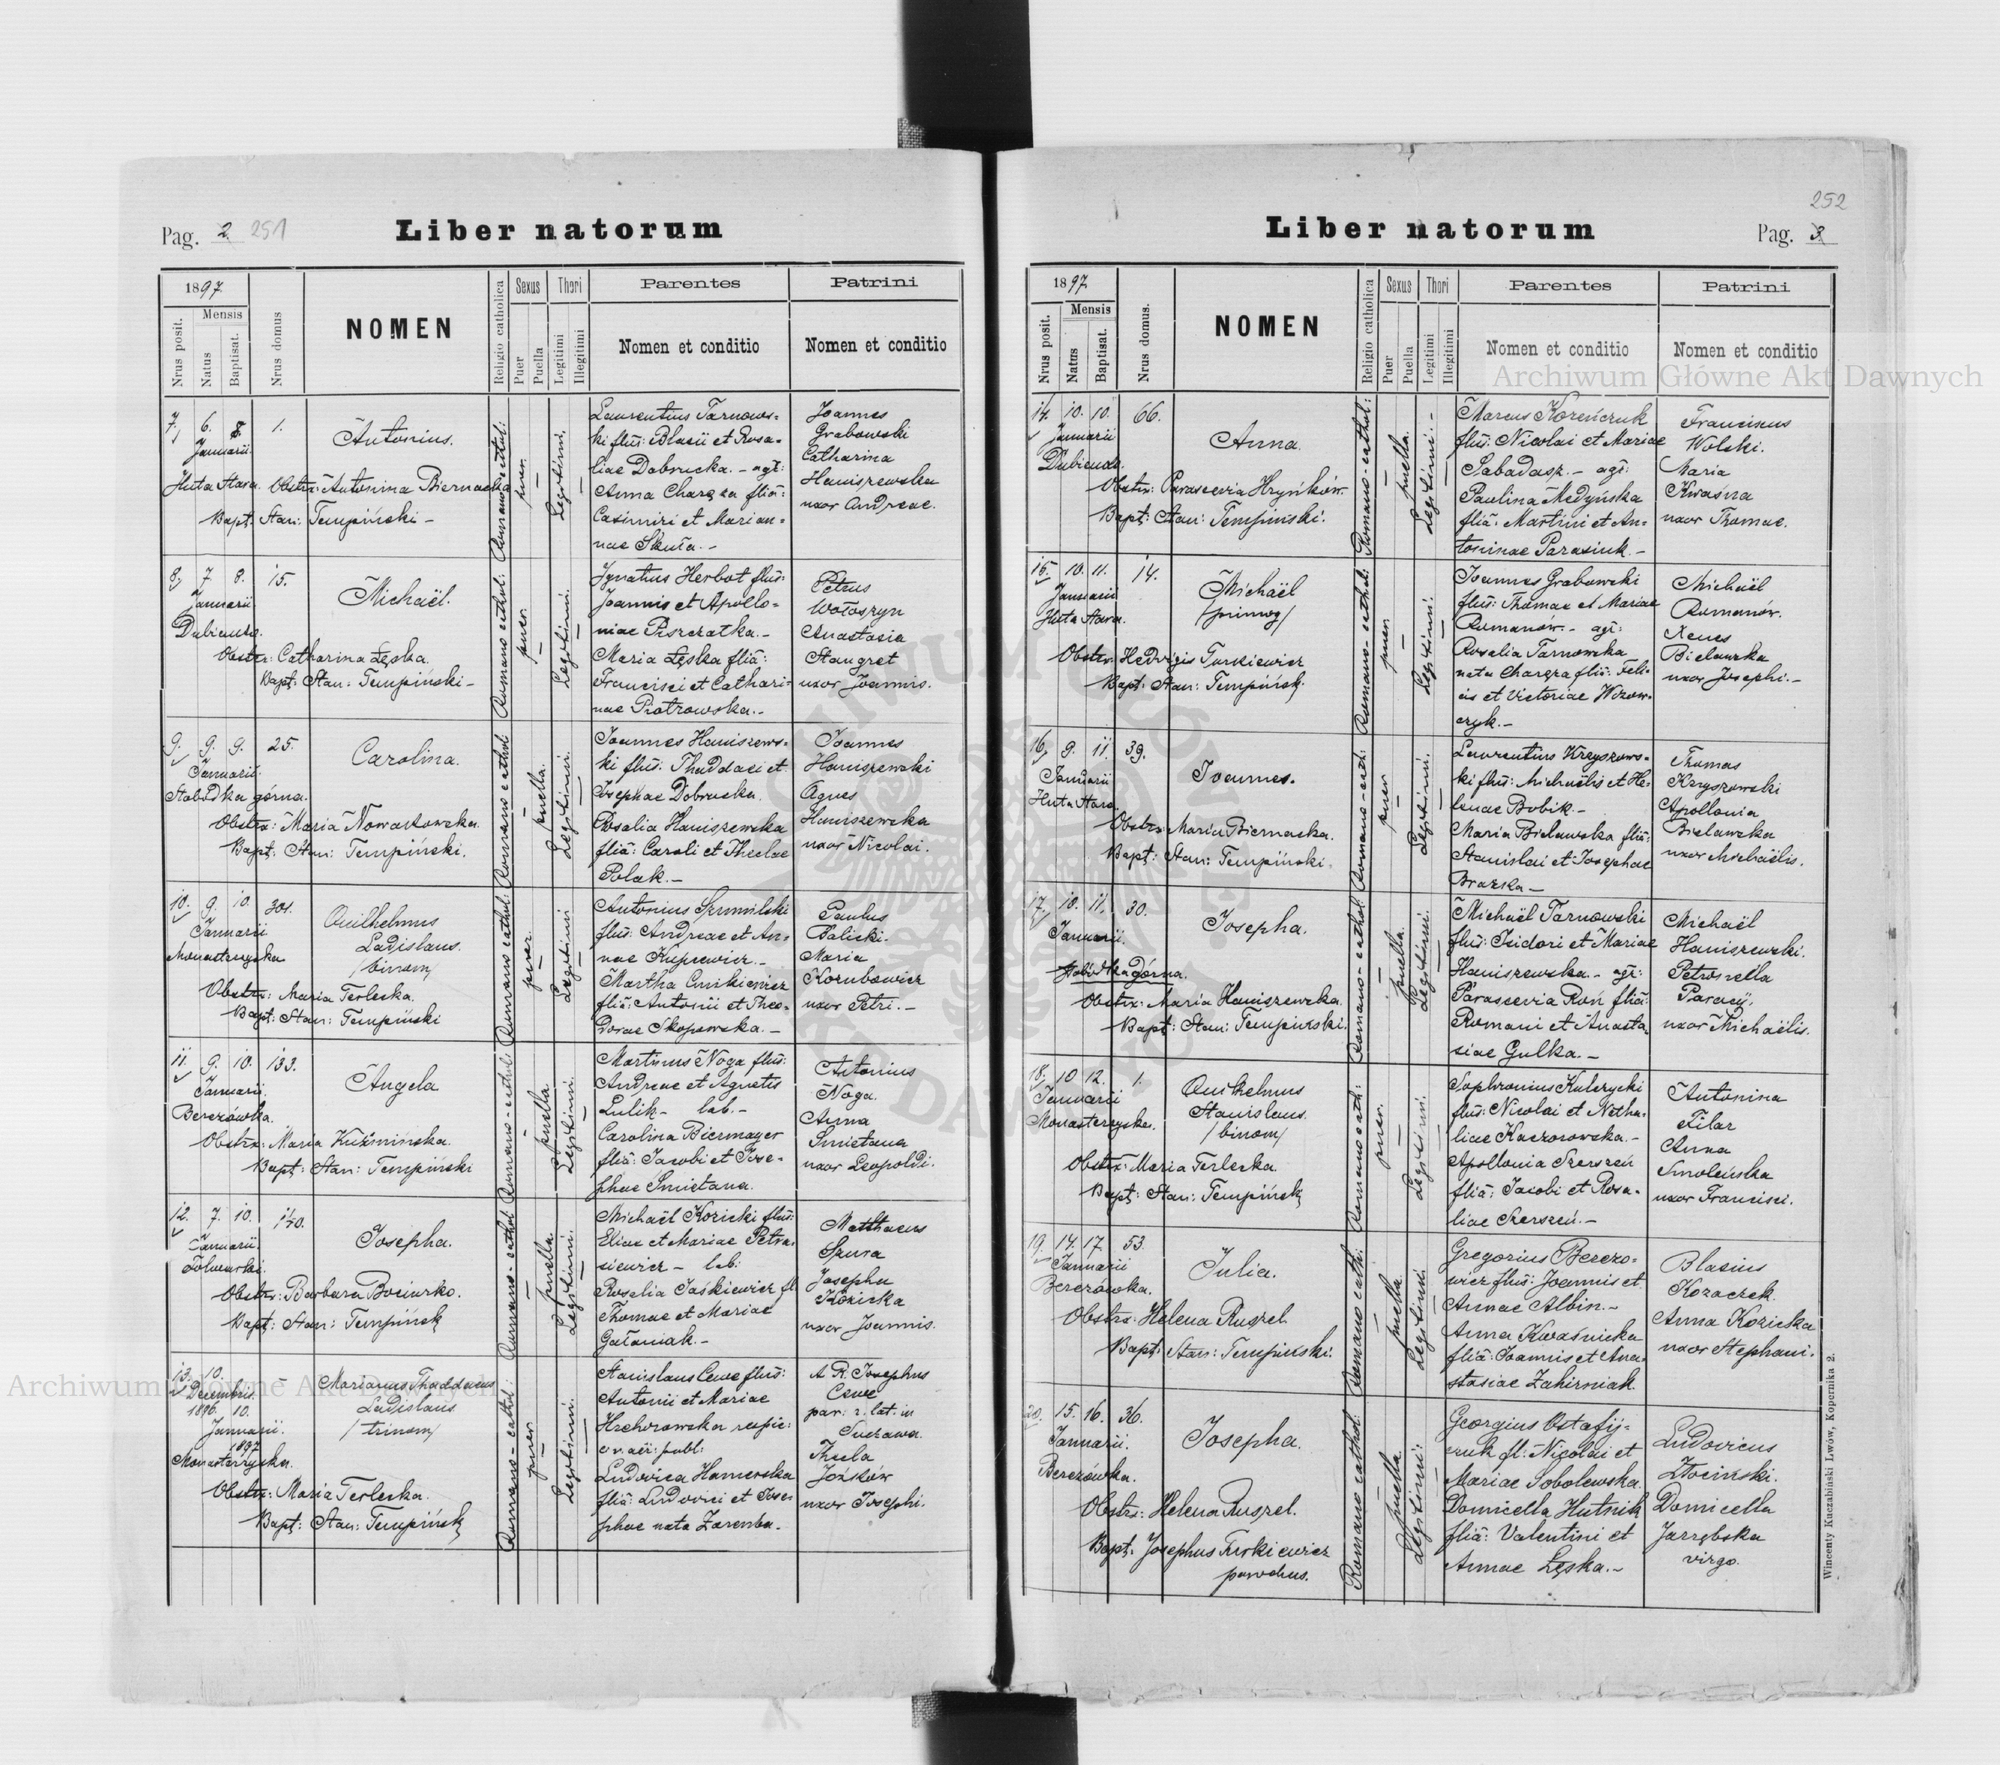 Pag. 2 251
Liber natorum
1897
Nrus posit.
Mensis
Natus
Baptisat.
Nrus domus
NOMEN
Religio catholica
Sexus
Puer
Puella
Thori
Legitimi
Illegitimi
Parentes
Nomen et conditio
Patrini
Nomen et conditio
7, 6. 8. 1.
Januarii.
Huta Stara.
Antonius.
Obstx: Antonina Biernacka
Bapt: Stan: Tempiński –
Romano cathol:
puer.
Legitimi.
Laurentius Tarnows-
ki flius: Blasii et Rosa-
liae Dobrucka. – agr:
Anna Charęza filia:
Casimiri et Marian-
nae Skuła. –
Joannes
Grabowski
Catharina
Haniszewska
uxor Andreae.
8, 7 8. 15.
Januarii
Dubienko.
Michaël.
Obstx: Catharina Łęska.
Bapt: Stan: Tempiński –
Romano cathol:
puer.
Legitimi.
Ignatius Herbot flius:
Joannis et Apollo-
niae Piszczatka. –
Maria Łęska filia:
Francisci et Cathari-
nae Piotrowska. –
Petrus
Wołoszyn
Anastasia
Staugret
uxor Joannis.
9. 9. 9. 25.
Januarii.
Słobódka górna.
Carolina.
Obstx: Maria Nowartowska.
Bapt: Stan: Tempiński.
Romano cathol
puella.
Legitimi.
Joannes Haniszews-
ki flius: Thaddaei et
Josephae Dobrucka.
Rosalia Haniszewska
filia: Caroli et Theclae
Polak. –
Joannes
Haniszewski
Agnes
Haniszewska
uxor Nicolai.
10. 9. 10. 301.
Januarii
Monasterzyska
Quilhelmus
Ladislaus.
/binom/
Obstx: Maria Terlecka.
Bapt: Stan: Tempiński
Romano cathol
puer.
Legitimi
Antonius Szumilski
flius: Andreae et An-
nae Kuprewicz. –
Martha Ćmikiewicz
filia: Antonii et Theo-
dorae Skopowska. –
Paulus
Balicki.
Maria
Kornbowicz
uxor Petri. –
11. 9. 10. 133.
Januarii
Berezówka.
Angela
Obstx: Maria Kuźmińska.
Bapt: Stan: Tempiński
Romano-cathol:
puella.
Legitimi.
Martinus Noga flius:
Andreae et Agnetis
Lulik – lab. –
Carolina Biermayer
filia: Jacobi et Jose-
phae Smietana.
Antonius
Noga.
Anna
Smietana
uxor Leopoldi.
12. 7. 10. 140.
Januarii.
Folwarki.
Josepha.
Obstx: Barbara Bociurko.
Bapt: Stan: Tempińsk
Romano-cathol
puella.
Legitimi.
Michaël Kozicki flius:
Eliae et Mariae Petra-
siewicz – lab:
Rosalia Jaśkiewicz fl
Thomae et Mariae
Gałaniak. –
Matthaeus
Szura
Josepha
Kozicka
uxor Joannis.
13. 10.
Decembris
1896. 10.
Januarii.
1897
Monasterzyska.
Marianus Thaddaeus
Ladislaus
/trinom/
Obstx: Maria Terlecka.
Bapt: Stan: Tempińsk
Romano-cathol:
puer.
Legitimi.
Stanislaus Cewe flius:
Antonii et Mariae
Ludovica Hamerska
filia: Ludovici et Jose-
phae nata Zaremba.
A. R. Josephus
Cewe
par. r. lat. in
Suczawa.
Thecla
Jożków
uxor Josephi.
252
Liber natorum
Pag. 3
1897
Nrus posit.
Mensis
Natus
Baptisat.
Nrus domus.
NOMEN
Religio catholica
Sexus
Puer
Puella
Thori
Legitimi
Illegitimi
Parentes
Nomen et conditio
Patrini
Nomen et conditio
14. 10. 10. 66.
Januarii
Dubienko.
Anna.
Obstx: Parascevia Hryńków.
Bapt: Stan: Tempiński.
Romano-cathol:
puella.
Legitimi. –
Marcus Koreńczuk
flius: Nicolai et Mariae
Sabadasz. – agr:
Paulina Medyńska
filia: Martini et An-
toninae Parasiuk. –
Franciscus
Wolski.
Maria
Kwaśna
uxor Thomae.
15. 10. 11. 14.
Januarii
Huta Stara.
Michaël
/primog/
Obstx: Hedvigis Turkiewicz
Bapt: Stan: Tempińsk.
Romano-cathol:
puer.
Legitimi.
Joannes Grabowski
flius: Thomae et Mariae
Romanów. – agr:
Rosalia Tarnowska
nata Charęza filia: Feli-
cis et Victoriae Wizow-
czyk. –
Michaël
Romanów.
Xenes
Bielawska
uxor Josephi. –
16, 9. 11. 39.
Januarii
Huta Stara
Joannes.
Obstx: Maria Biernacka.
Bapt: Stan: Tempiński.
Romano-cath:
puer.
Legitimi.
Laurentius Krzyszows-
ki flius: Michaëlis et He-
lenae Bobik. –
Maria Bielawska filia:
Stanislai et Josephae
Brazka –
Thomas
Krzyszowski
Apollonia
Bielawska
uxor Michaëlis.
17, 10. 11. 30.
Januarii.
Słobódka górna.
Josepha.
Obstx: Maria Haniszewska.
Bapt: Stan: Tempiński.
Romano-cathol:
puella.
Legitimi.
Michaël Tarnowski
flius: Isidori et Mariae
Haniszewska. – agr:
Parascevia Roń filia:
Romani et Anasta-
siae Gulka. –
Michaël
Haniszewski.
Petronella
Paracij,
uxor Michaëlis.
18. 10 12. 1.
Januarii
Monasterzyska.
Quilhelmus
Stanislaus.
/binom/
Obstx: Maria Terlecka
Bapt: Stan: Tempińsk
Romano cath:
puer.
Legitimi.
Sophronius Kulczycki
flius: Nicolai et Natha-
liae Kaczorowska. –
Apollonia Szerszeń
filia: Jacobi et Rosa-
liae Szerszeń. –
Antonina
Filar
Anna
Smoleńska
uxor Francisci.
19. 14. 17. 53.
Januarii
Berezówka.
Julia.
Obstx: Helena Ruszel
Bapt: Stan: Tempiński.
Romano cath:
puella
Legitimi.
Gregorius Berezo-
wicz flius: Joannis et
Annae Albin. –
Anna Kwaśnicka
filia: Joannis et Ana-
stasiae Zahirniak.
Blasius
Kozaczek.
Anna Kozicka
uxor Stephani.
20. 15. 16. 36.
Januarii.
Berezówka.
Josepha.
Obstx: Helena Ruszel.
Bapt: Josephus Turkiewicz
parochus.
Romano cathol:
puella
Legitimi:
Georgius Ostafij-
czuk fl: Nicolai et
Mariae Sobolewska
Domicella Hutnik
filia: Valentini et
Annae Łęska. –
Ludovicus
Złociński.
Domicella
Jarzębska
virgo.
Wincenty Kuczabiński Lwów, Kopernika 2.
Archiwum Główne Akt Dawnych
Archiwum Główne Akt Dawnych